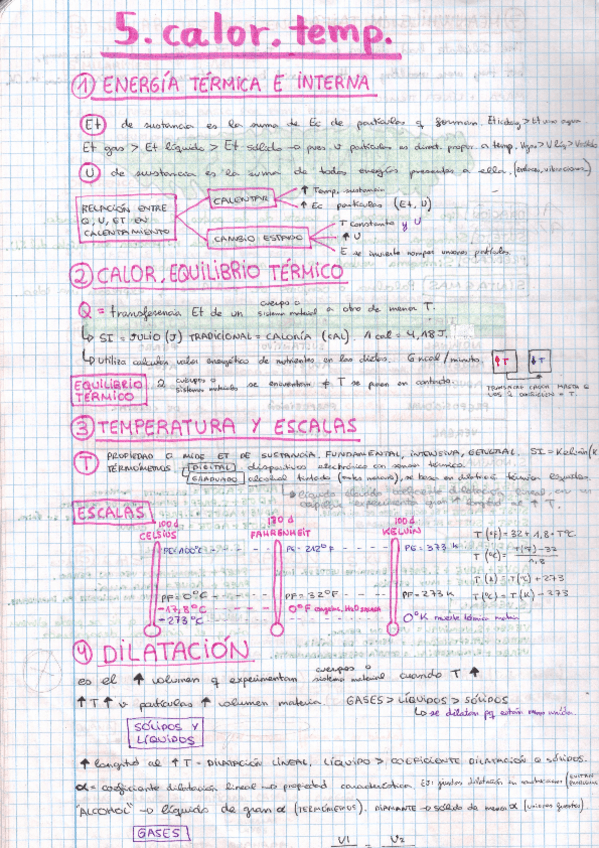 5. calor. temp.
1 ENERGÍA TÉRMICA E INTERNA
Et de sustancia es la suma de Ec de partículas q forman. Et > Et agua
Et gas > Et líquido > Et sólido → pues v partículas es direct. propor. a temp. Vgas > Vlíq > Vsólido
U de sustancia es la suma de todas energías presentes a ella. (enlace, vibraciones..)
RELACIÓN ENTRE Q, U, ET EN CALENTAMIENTO
CALENTAR
↑ Temp. sustancia
↑ Ec partículas (Et, U)
CAMBIO ESTADO
T constante y U
↑ U
E se invierte romper uniones partículas
2 CALOR. EQUILIBRIO TÉRMICO
Q = transferencia Et de un cuerpo o sistema material a otro de menor T.
↳ SI = JULIO (J) TRADICIONAL = CALORÍA (CAL). 1 cal = 4,18 J.
↳ Utiliza calcular valor energético de nutrientes en las dietas. 6 kcal / minuto.
↑T ↓T
EQUILIBRIO TÉRMICO
2 cuerpos o sistemas materiales se encuentran ≠ T se ponen en contacto.
CALOR HASTA Q LOS 2 = T.
3 TEMPERATURA Y ESCALAS
T PROPIEDAD Q MIDE ET DE SUSTANCIA. FUNDAMENTAL, INTENSIVA, GENERAL. SI = Kelvin (K
TERMÓMETROS. DIGITAL dispositivos electrónico con sensor térmico.
GRADUADO alcohol tintado (antes mercurio), se basa en dilatación térmica
↳ líquido elevado coeficiente dilatación lineal en un
capilar experimenta gran ↑ T.
ESCALAS
100 d CELSIUS
180 d FAHRENHEIT
100 d KELVIN
PE = 100ºC PE = 212ºF PE = 373 K
PF = 0ºC PF = 32ºF PF = 273 K
-17,8ºC 0ºF
-273ºC 0ºK muerte térmica materia
T (ºF) = 32 + 1,8 · TºC.
T (ºC) = T(ºF) - 32 / 1,8
T (K) = T(ºC) + 273
T (ºC) = T (K) - 273
4 DILATACIÓN
es el ↑ volumen q experimentan cuerpos o sistema material cuando T ↑
↑ T ↑ v partículas ↑ volumen materia GASES > LÍQUIDOS > SÓLIDOS
↳ se dilatan pq están menos unida
SÓLIDOS Y LÍQUIDOS
↑ longitud al ↑ T - DILATACIÓN LINEAL. LÍQUIDO > COEFICIENTE DILATACIÓN Q SÓLIDOS.
α = coeficiente dilatación lineal → propiedad característica. EJ: juntas dilatación en
"ALCOHOL" → líquido de gran α (TERMÓMETROS). DIAMANTE → sólido de menor α (uniones fuertes).
GASES
V1 = V2